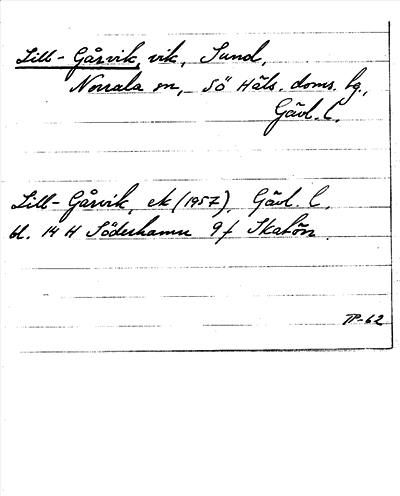 Lill-Gåsvik, vik, Sund,
Norrala sn, Sö Häls. doms. hg.,
Gävl. l.
Lill-Gåsvik, ek (1957), Gävl. l.
bl. 14 H Söderhamn 9f Skatön.
TP-62